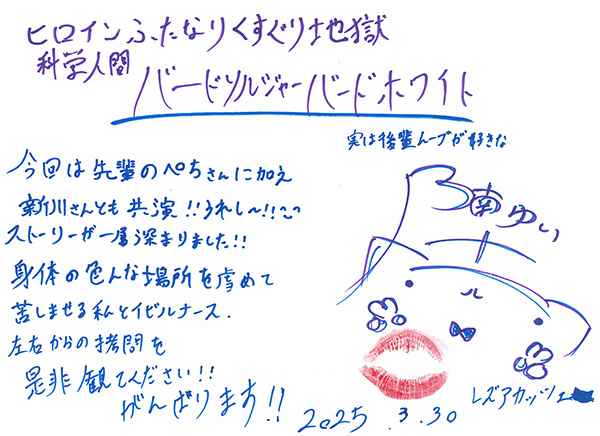 ヒロインふたなりくすぐり地獄
科学人間
バードソルジャーバードホワイト
実は後輩ムーブが好きな
南ゆい
今回は先輩のぺちさんに加え
新川さんとも共演!!うれし〜!!
ストーリーが一層深まりました!!
身体の色んな場所を虐めて
苦しませる私とイビルナース.
左右からの拷問を
是非観てください!!
がんばります!!
2025.3.30